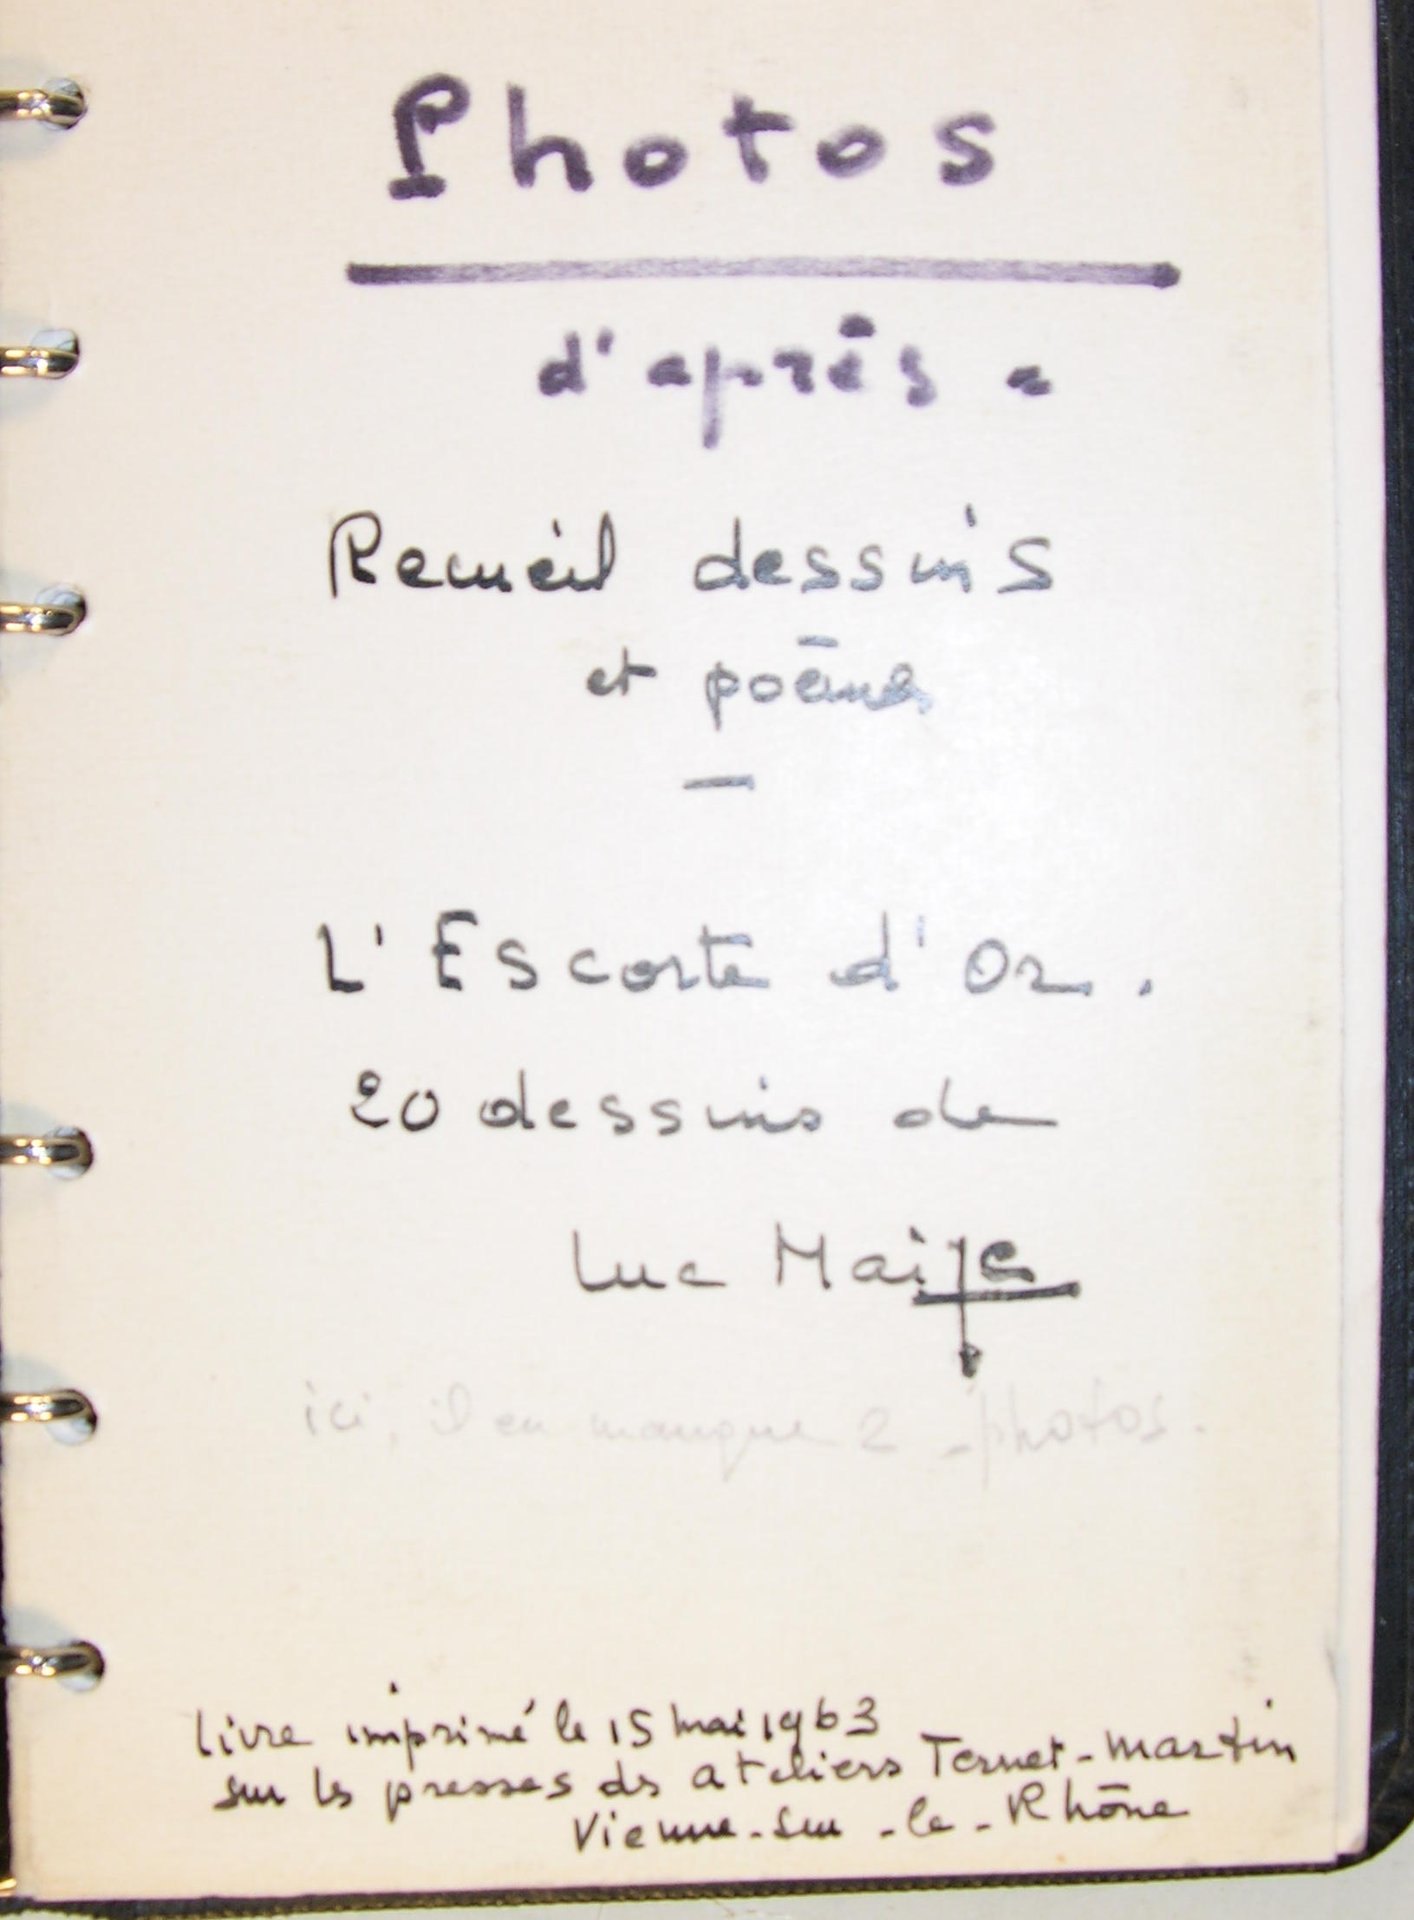 Photos
d'après -
Recueil dessins
et poēmes
—
L'Escorte d'Or.
20 dessins de
Luc
ici, il en manque 2 photos.
Livre imprimé le 15 mai 1963
sur les presses des ateliers Ternet-Martin
Vienne-sur-le-Rhōne